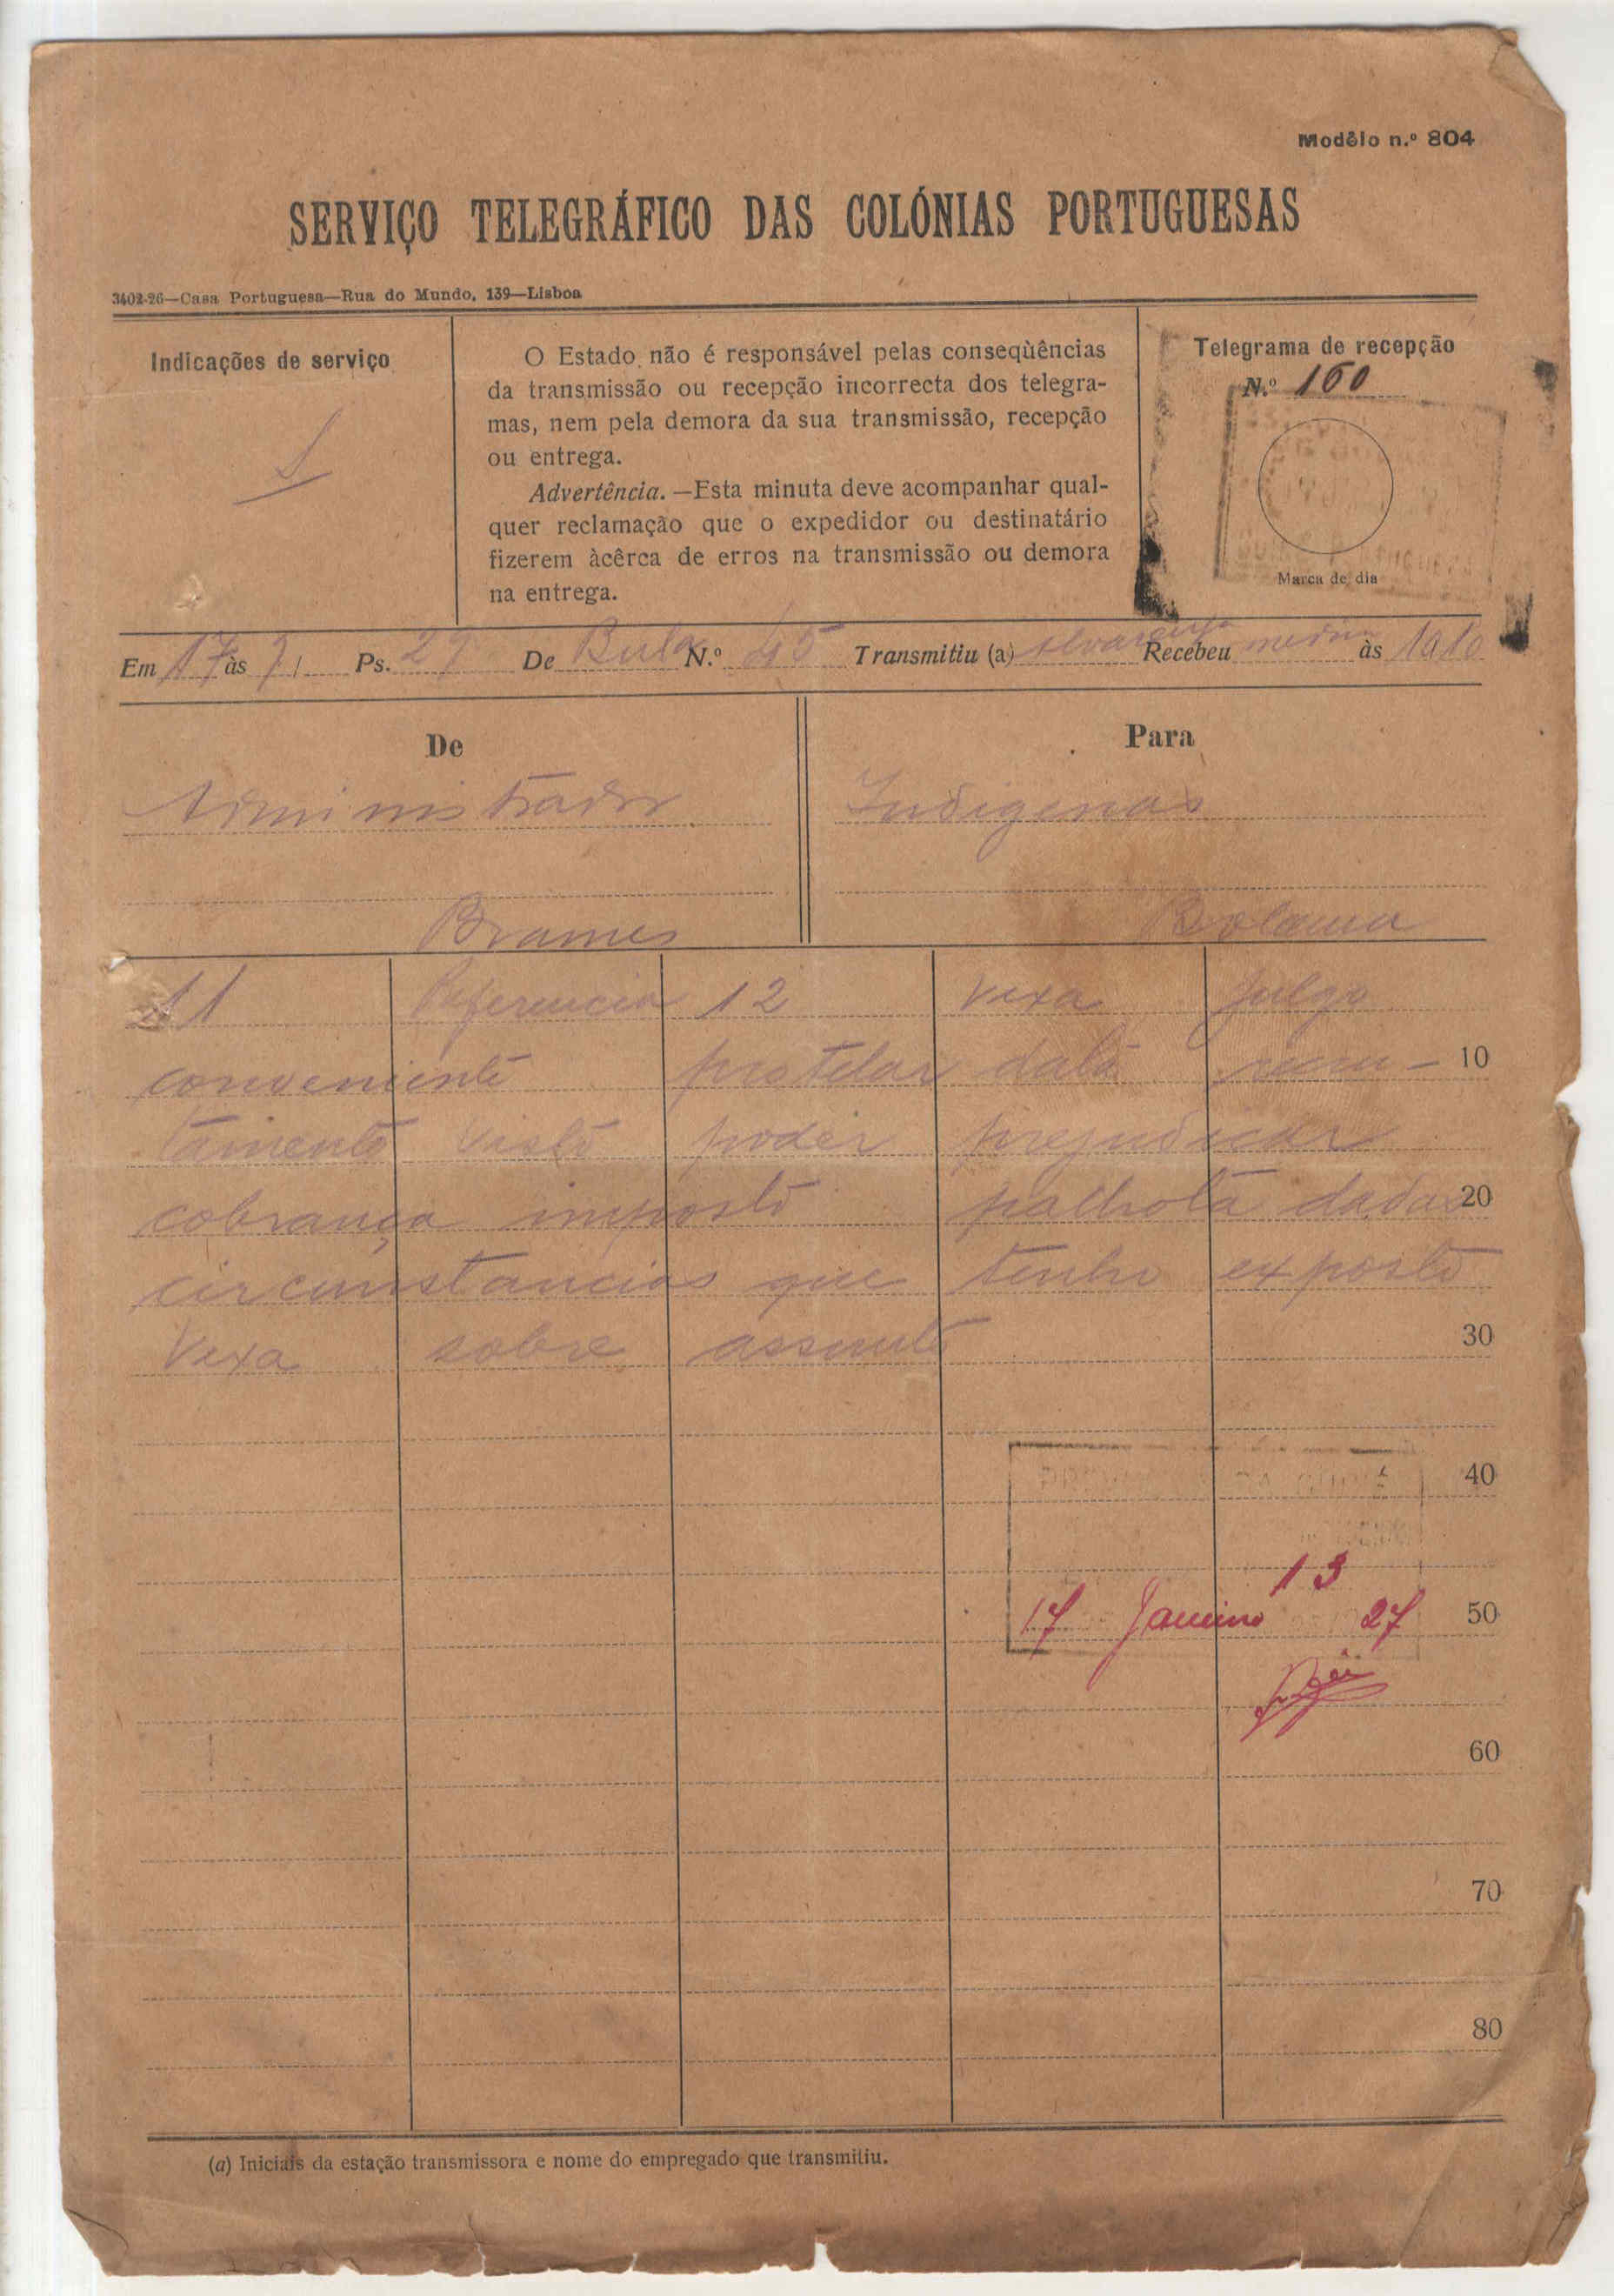 Modêlo n.º 804
SERVIÇO TELEGRÁFICO DAS COLÓNIAS PORTUGUESAS
3402-26—Casa Portuguesa—Rua do Mundo, 139—Lisboa
Indicações de serviço
O Estado não é responsável pelas conseqùências
da transmissão ou recepção incorrecta dos telegra-
mas, nem pela demora da sua transmissão, recepção
ou entrega.
Advertência. —Esta minuta deve acompanhar qual-
quer reclamação que o expedidor ou destinatário
fizerem àcêrca de erros na transmissão ou demora
na entrega.
Telegrama de recepção
N.º 160
Marca de dia
Em 17 às Ps. 29 De Bula N.º 45 Transmitiu (a) Recebeu às 1910
De
Administrador
Brames
Para
Indigenas
Bolama
11 Referencia 12 Vexa julgo
conveniente protelar data recru- 10
tamento visto poder prejudicar
cobrança imposto palhota dadas 20
circumstancias que tenho exposto
Vexa sobre assunto 30
40
13
17 Janeiro 27 50
60
70
80
(a) Iniciais da estação transmissora e nome do empregado que transmitiu.